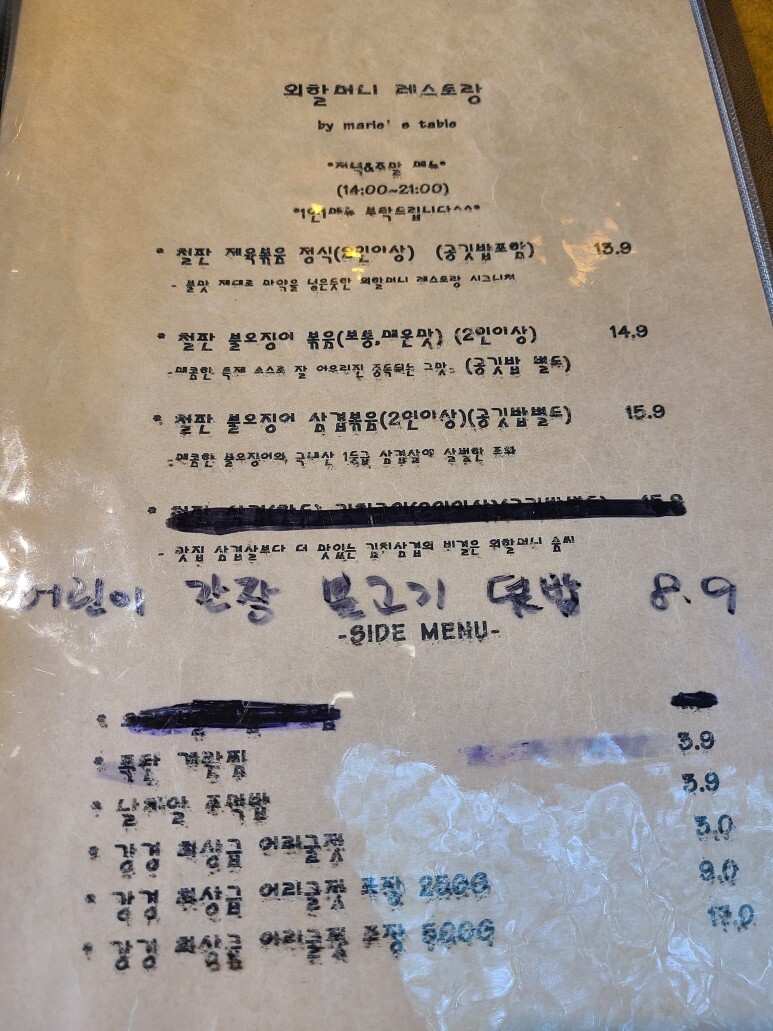 외할머니 레스토랑
by marie' s table
*저녁&주말 메뉴*
(14:00~21:00)
*1인1메뉴 부탁드립니다^^*
* 철판 제육볶음 정식(2인이상) (공깃밥포함) 13.9
- 불맛 제대로 마약을 넣은듯한 외할머니 레스토랑 시그니처
* 철판 불오징어 볶음(보통,매운맛) (2인이상) 14.9
-매콤한 특제 소스로 잘 어우러진 중독되는 그맛- (공깃밥 별도)
* 철판 불오징어 삼겹볶음(2인이상)(공깃밥별도) 15.9
-매콤한 불오징어와 국내산 1등급 삼겹살의 살벌한 조화
- 맛집 삼겹살보다 더 맛있는 김치삼겹의 비결은 외할머니 솜씨
어린이 간장 불고기 덮밥 8.9
-SIDE MENU-
* 폭탄 계란찜 3.9
* 날치알 주먹밥 3.9
* 강경 최상급 어리굴젓 3.0
* 강경 최상급 어리굴젓 포장 250G 9.0
* 강경 최상급 어리굴젓 포장 500G 17.0